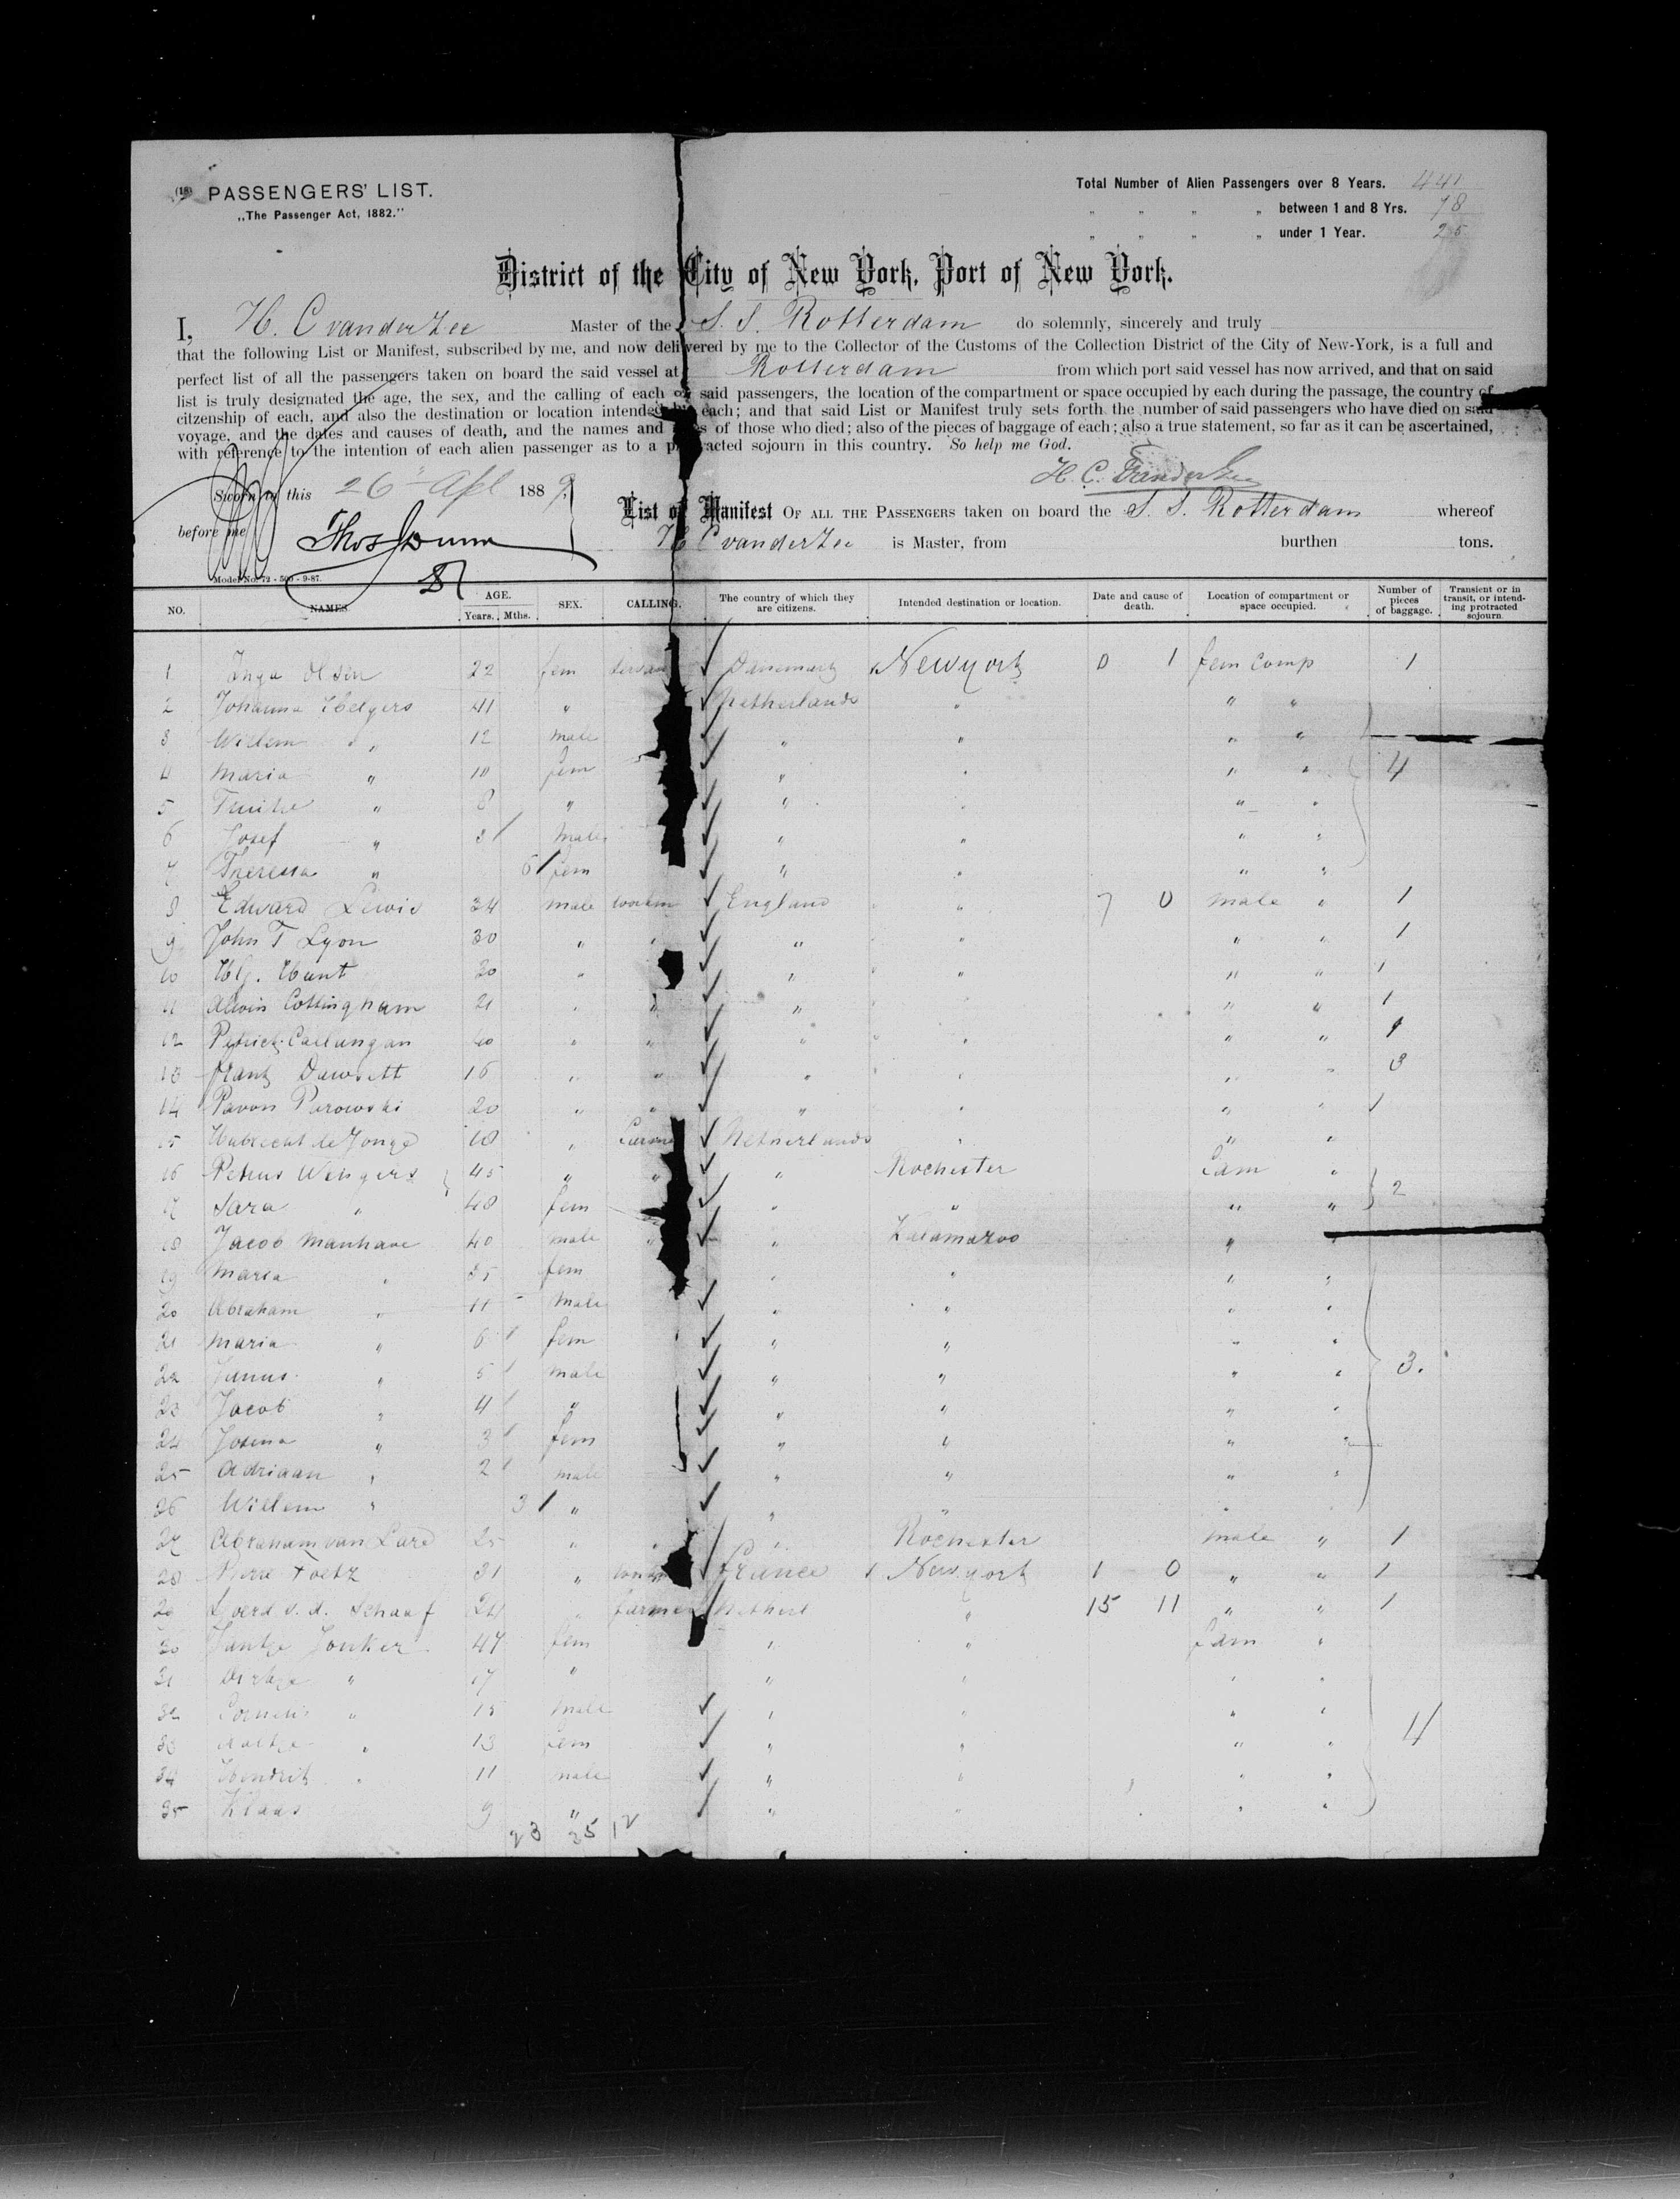 (18) PASSENGERS' LIST.
„The Passenger Act, 1882."
Total Number of Alien Passengers over 8 Years. 441
„ „ „ „ between 1 and 8 Yrs. 78
„ „ „ „ under 1 Year. 25
District of the City of New York, Port of New York.
I, H. C vander Zee Master of the S. S. Rotterdam do solemnly, sincerely and truly
that the following List or Manifest, subscribed by me, and now delivered by me to the Collector of the Customs of the Collection District of the City of New-York, is a full and
perfect list of all the passengers taken on board the said vessel at Rotterdam from which port said vessel has now arrived, and that on said
list is truly designated the age, the sex, and the calling of each of said passengers, the location of the compartment or space occupied by each during the passage, the country of
citzenship of each, and also the destination or location intended by each; and that said List or Manifest truly sets forth the number of said passengers who have died on said
voyage, and the dates and causes of death, and the names and ages of those who died; also of the pieces of baggage of each; also a true statement, so far as it can be ascertained,
with reference to the intention of each alien passenger as to a protracted sojourn in this country. So help me God.
H. C. vander Zee
Sworn to this 26 Apl 1889
before me Thos Dunn
List or Manifest OF ALL THE PASSENGERS taken on board the S. S. Rotterdam whereof
H C vander Zee is Master, from burthen tons.
Model No. 72 - 500 - 9-87.
NO. NAMES. AGE. Years. Mths. SEX. CALLING. The country of which they are citizens. Intended destination or location. Date and cause of death. Location of compartment or space occupied. Number of pieces of baggage. Transient or in transit, or intending protracted sojourn.
1 Inga Olsen 22 fem servan Danemark Newyork 0 1 fem comp 1
2 Johanna Helgers 41 " Netherlands " " "
3 Willem " 12 male " " " "
4 Maria " 10 fem " " " " 4
5 " 8 " " " " "
6 Josef " 3 male " " " "
7 Theresia " 6 fem " " " "
8 Edward Lewis 34 male workm England " 7 0 male " 1
9 John T Lyon 30 " " " " " " 1
10 Hy. Hunt 30 " " " " " 1
11 Alwin Cottingham 21 " " " " " 1
12 Patrick Callungan 40 " " " " " " 1
13 Frank Dawsett 16 " " " " " " 3
14 Pavon Purowski 20 " " " " " " 1
15 Hubrecht de Jonge 18 " Farme Netherlands " " "
16 Petrus Wengers 45 " " " Rochester Fam "
17 Sara " 48 fem " " " " 2
18 Jacob Manhave 40 male " " Kalamazoo " "
19 Maria " 35 fem " " " "
20 Abraham " 11 male " " " "
21 Maria " 6 fem " " " "
22 " 5 male " " " " 3.
23 Jacob " 4 " " " " "
24 Josina " 3 fem " " " "
25 Adriaan " 2 male " " " "
26 Willem " 3 " " " " "
27 Abraham van Lare 25 " " " Rochester male " 1
28 Pierre Foetz 31 " work France Newyork 1 0 " " 1
29 Sjoerd v. d. Schaaf 24 " farmer Netherl " 15 11 " " 1
30 Jantje Jonker 47 fem " " Fam "
31 Dirkje " 17 " " " " "
32 Cornelis " 15 male " " " "
33 Aaltje " 13 fem " " " " 4
34 Hendrik " 11 male " " " "
35 Klaas 9 " " " " "
23 25 12